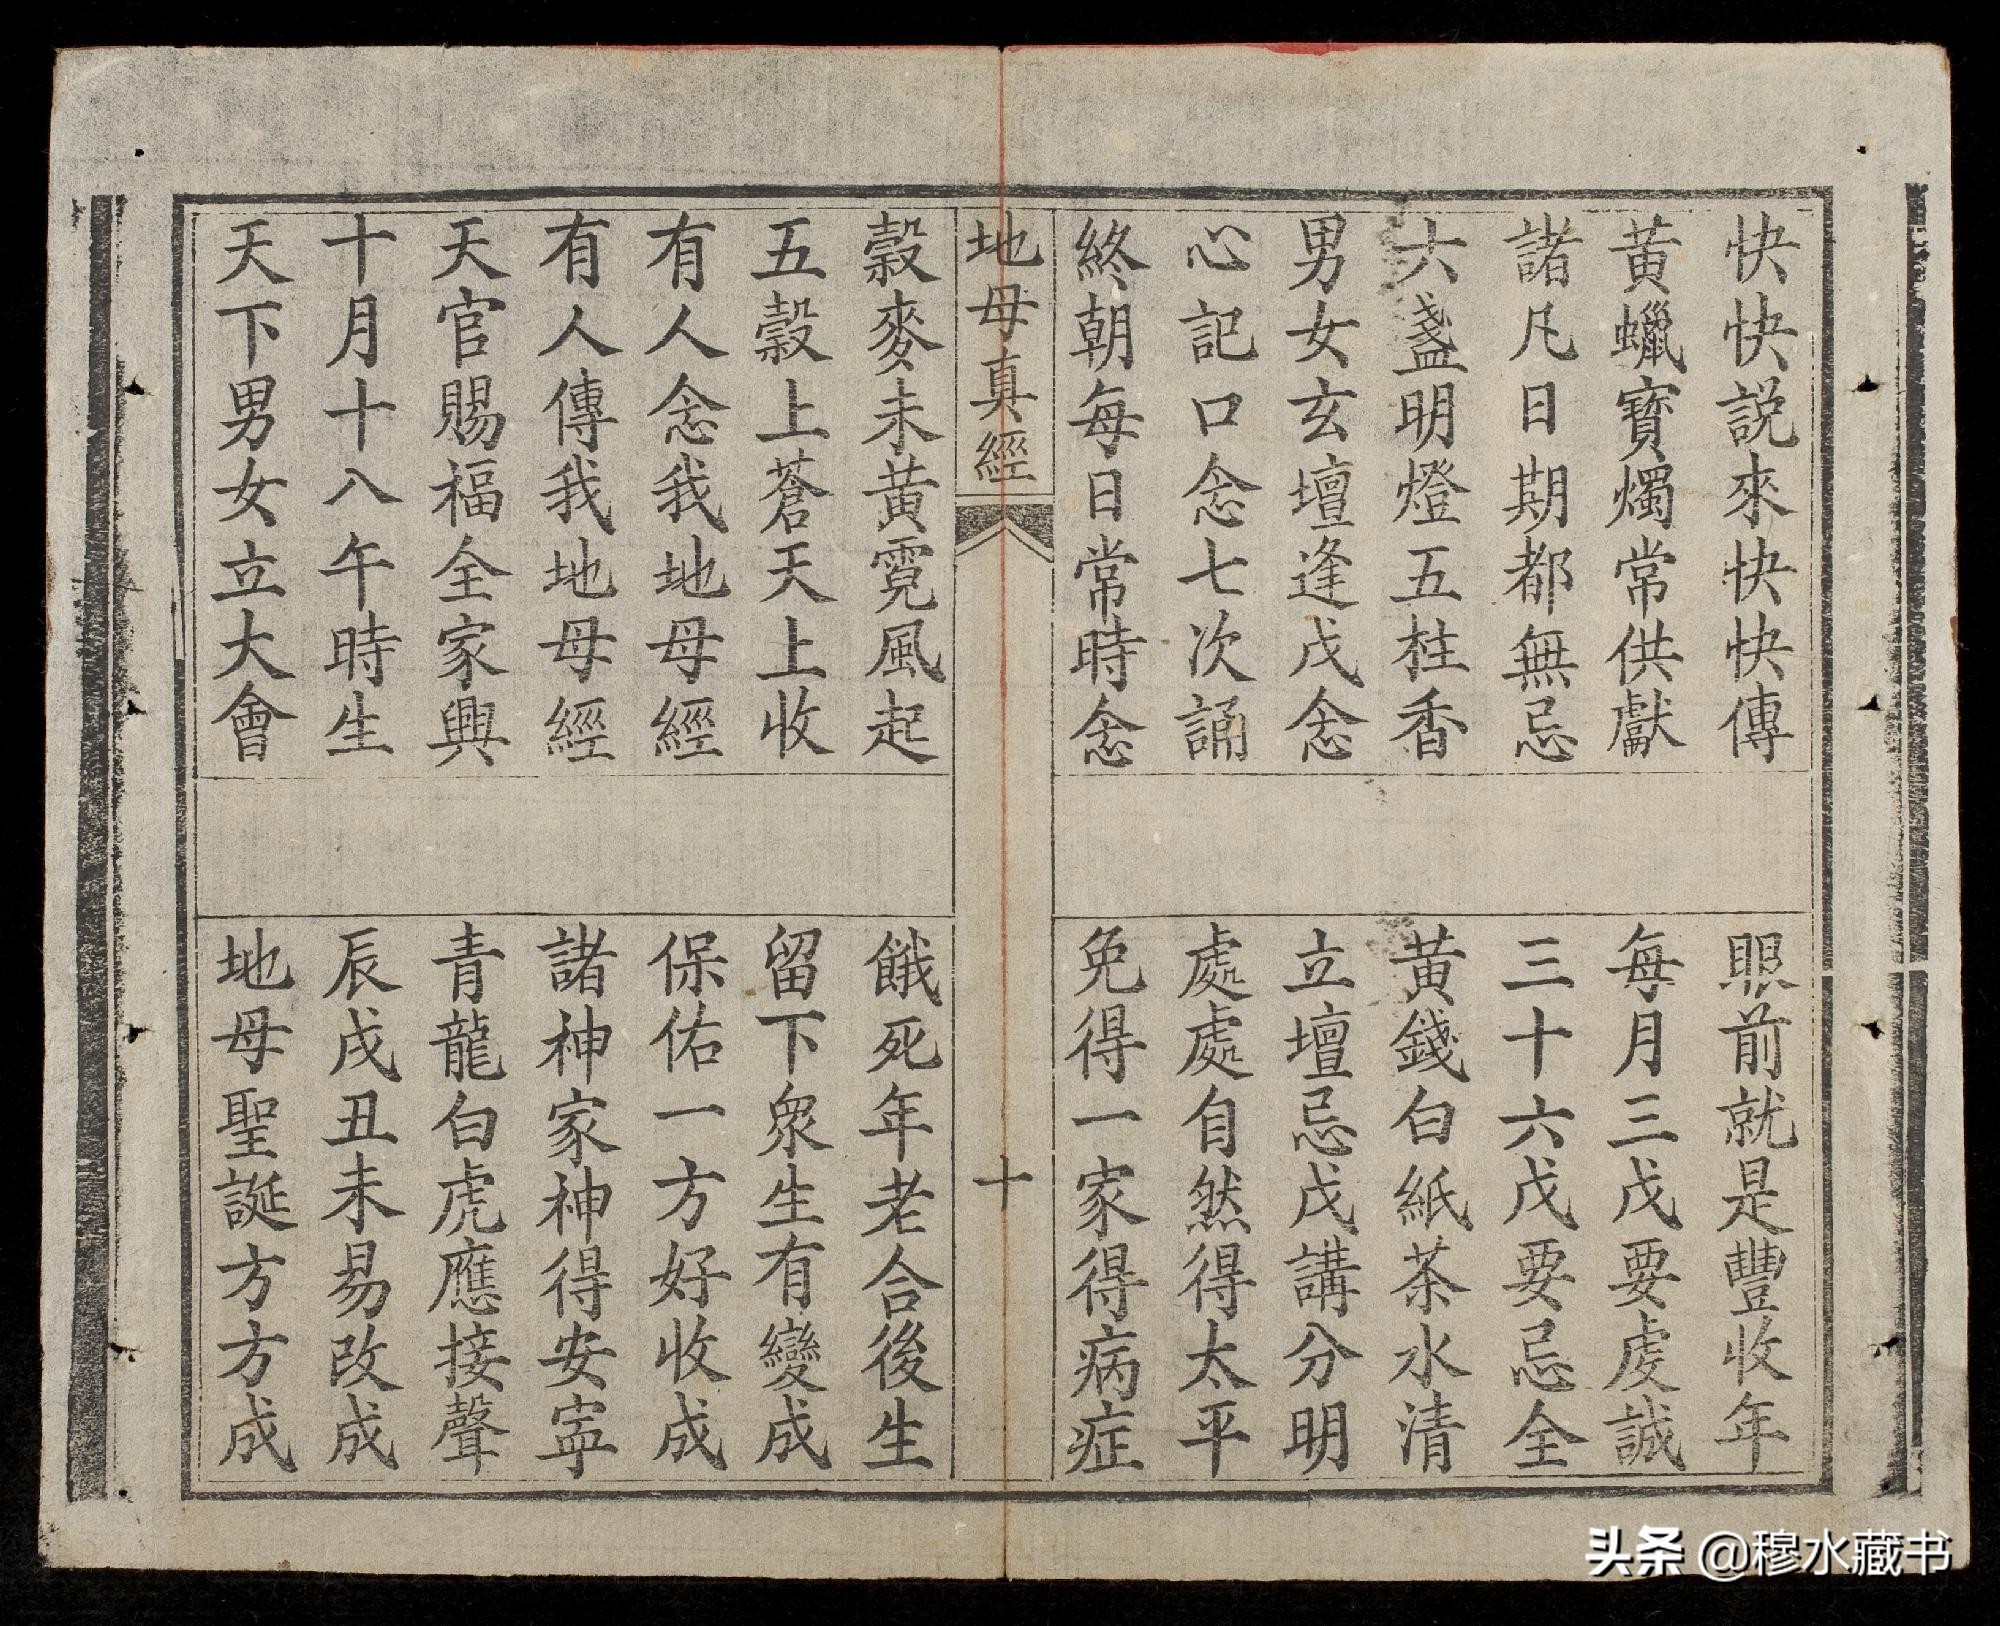 快快説來快快傳
眼前就是豐收年
黃蠟寶燭常供獻
每月三戊要虔誠
諸凡日期都無忌
三十六戊要忌全
六盞明燈五柱香
黃錢白紙茶水清
男女玄壇逢戊念
立壇忌戊講分明
心記口念七次誦
處處自然得太平
終朝每日常時念
免得一家得病症
地母真經
十
穀麥未黃霓風起
餓死年老合後生
五穀上蒼天上收
留下眾生有變成
有人念我地母經
保佑一方好收成
有人傳我地母經
諸神家神得安寕
天官賜福全家興
青龍白虎應接聲
十月十八午時生
辰戌丑未易改成
天下男女立大會
地母聖誕方方成
头条 @穆水藏书